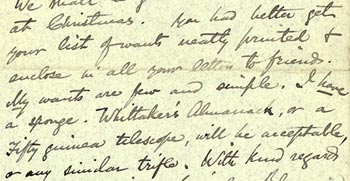 We shall
at Christmas. You had better get
your list of wants neatly printed &
enclose in all your letters to friends.
My wants are few and simple. I have
a sponge. Whittaker's Almanack, or a
Fifty guinea telescope, will be acceptable,
or any similar trifle. With kind regards